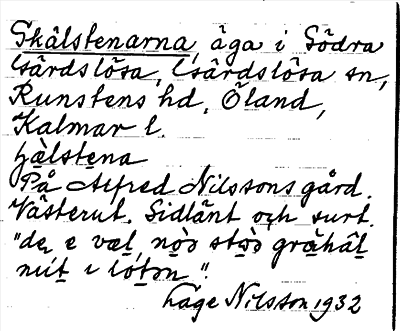 Skälstenarna, äga i Södra
Gärdslösa, Gärdslösa sn,
Runstens hd, Öland,
Kalmar l.
hälstena
På Alfred Nilssons gård.
Västerut. Sidlänt och surt.
"de e væl nòɔ stɔ̀ɔ gràhäl
mit i
Låge Nilsson 1932